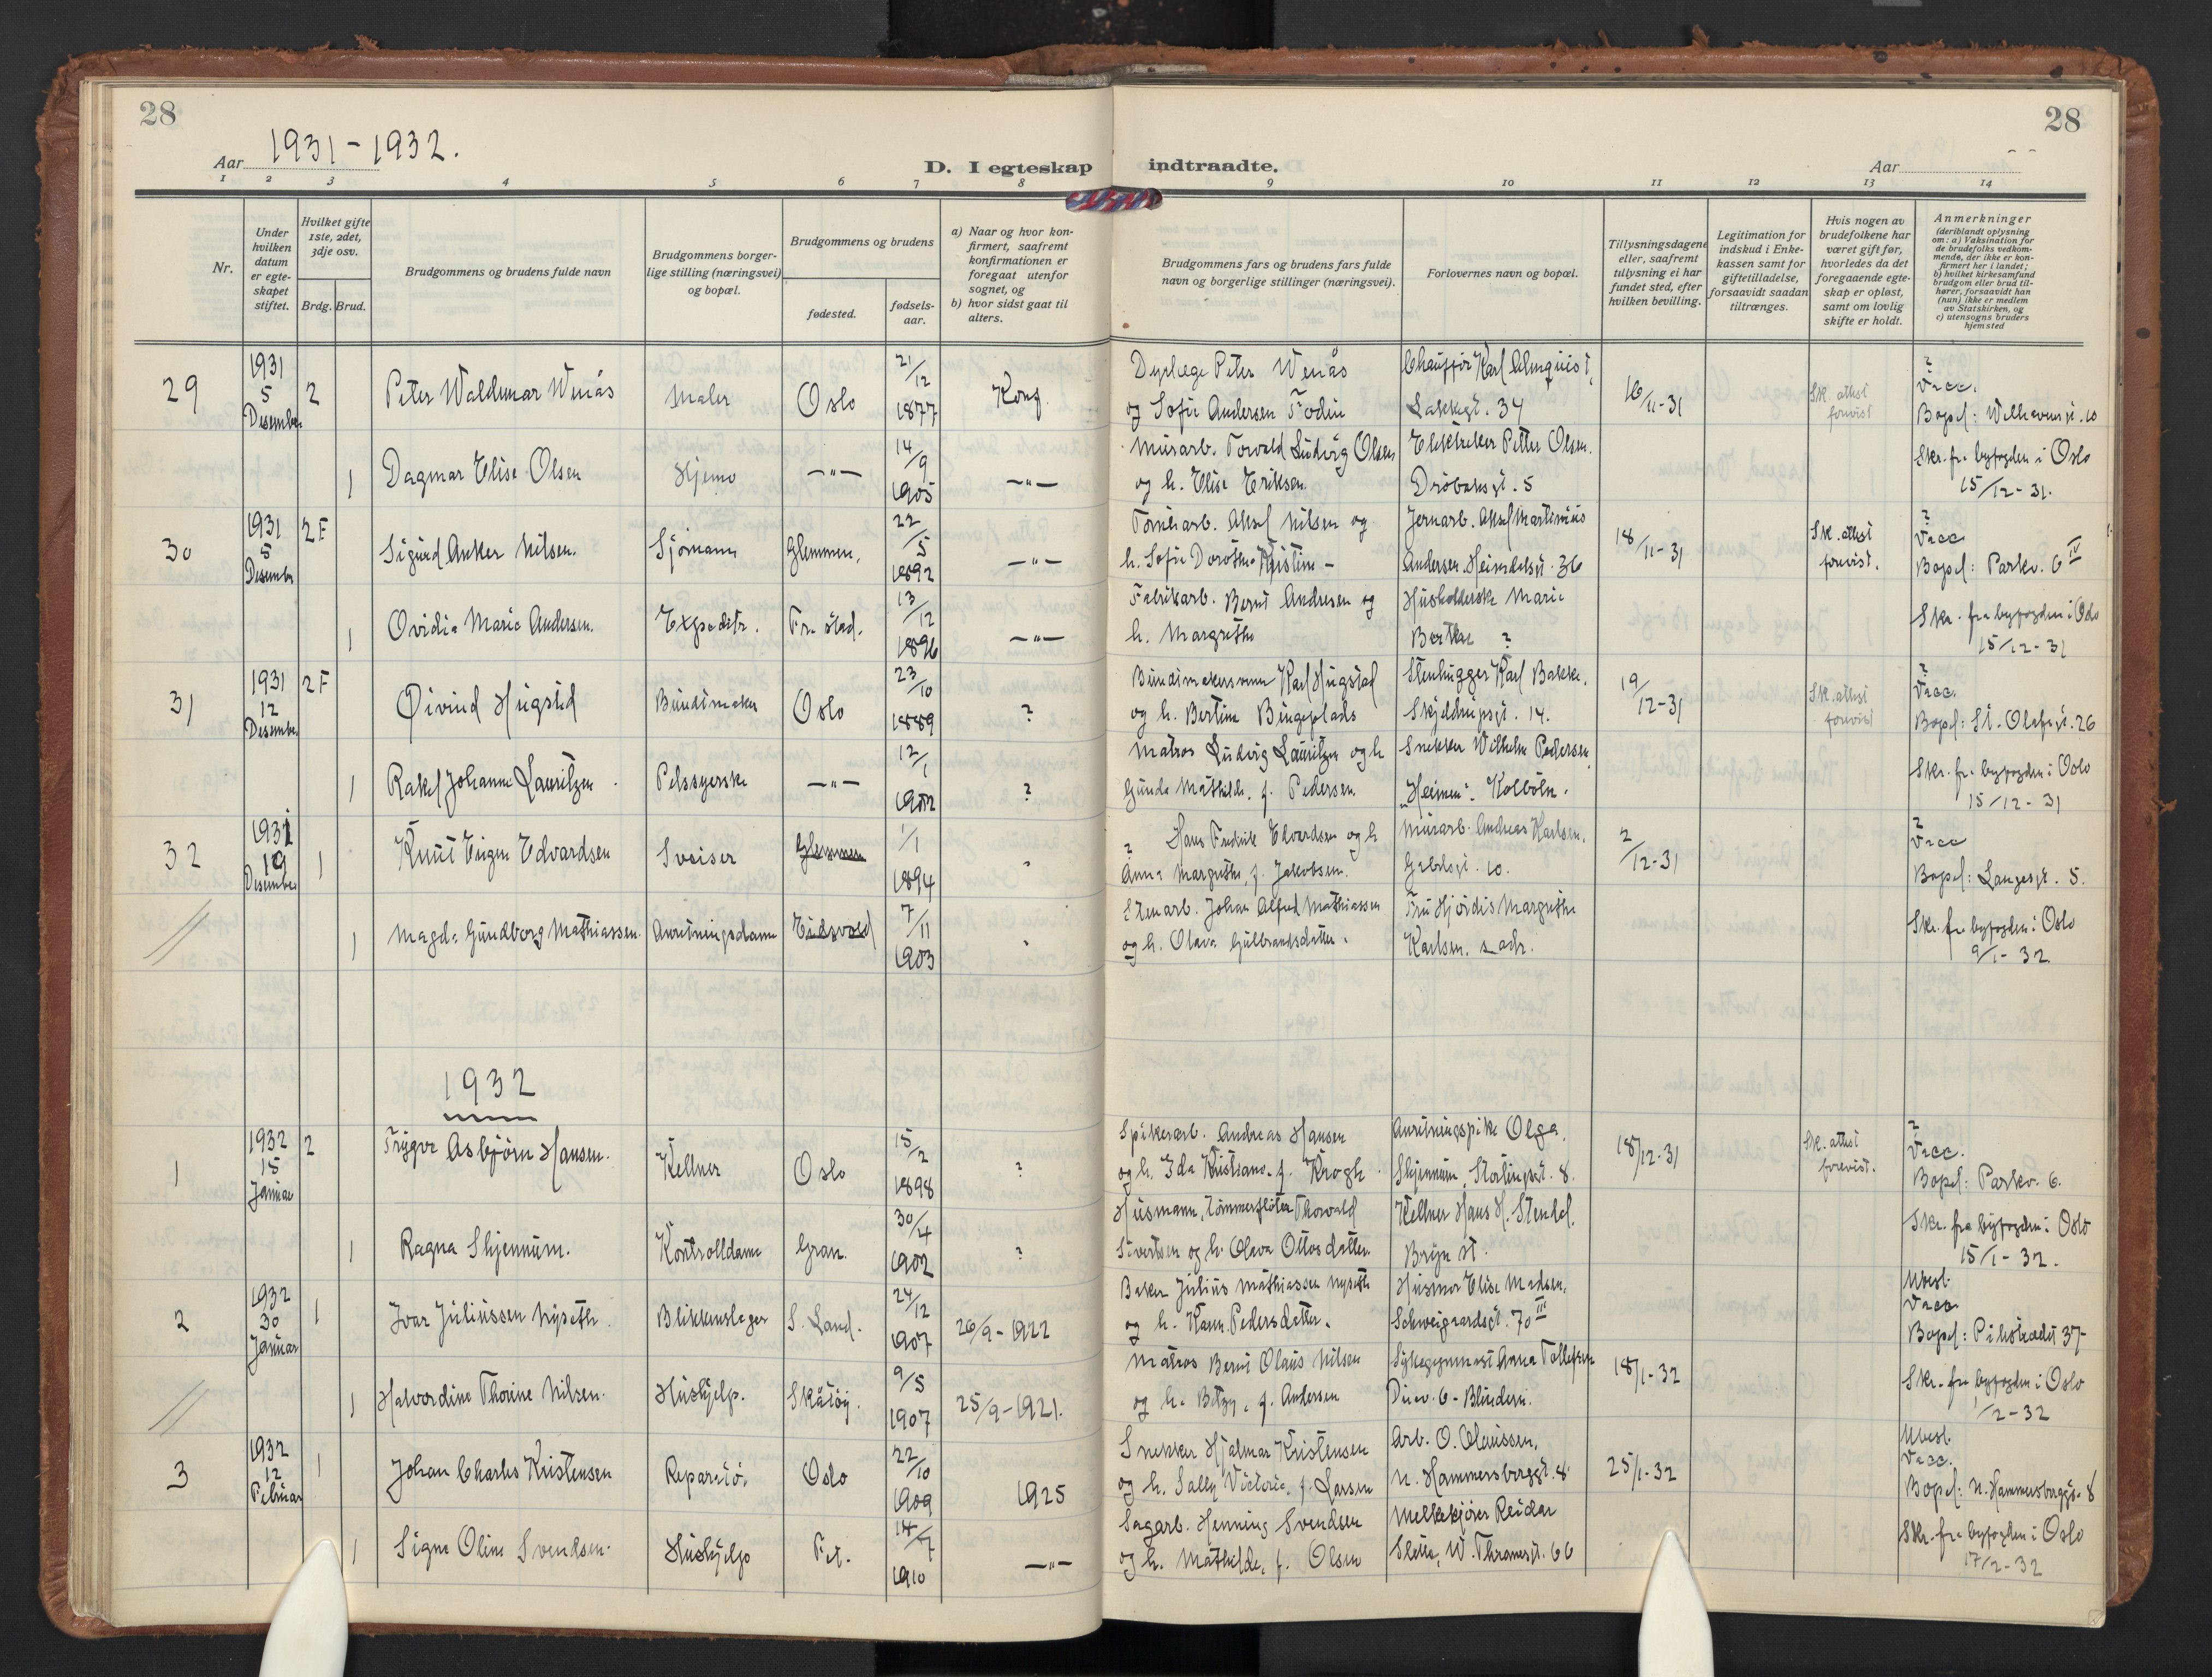 28
28
Aar 1931-1932.
D. I egteskap indtraadte.
Aar
1 2 3 4 5 6 7 8 9 10 11 12 13 14
Nr.
Under hvilken datum er egteskapet stiftet.
Hvilket gifte 1ste, 2det, 3dje osv.
Brdg. Brud.
Brudgommens og brudens fulde navn
Brudgommens borgerlige stilling (næringsvei) og bopæl.
Brudgommens og brudens
fødested.
fødselsaar.
a) Naar og hvor konfirmert, saafremt konfirmationen er foregaat utenfor sognet, og
b) hvor sidst gaat til alters.
Brudgommens fars og brudens fars fulde navn og borgerlige stillinger (næringsvei).
Forlovernes navn og bopæl.
Tillysningsdagene eller, saafremt tillysning ei har fundet sted, efter hvilken bevilling.
Legitimation for indskud i Enkekassen samt for giftetilladelse, forsaavidt saadan tiltrænges.
Hvis nogen av brudefolkene har været gift før, hvorledes da det foregaaende egteskap er opløst, samt om lovlig skifte er holdt.
Anmerkninger (deriblandt oplysning om: a) Vaksination for de brudefolks vedkommende, der ikke er konfirmert her i landet; b) hvilket kirkesamfund brudgom eller brud tilhører, forsaavidt han (hun) ikke er medlem av Statskirken, og c) utensogns bruders hjemsted
29 1931 5 Desember 2 Peter Waldemar Wenås Maler Oslo 21/12 1877 Konf. Dyrlæge Peter Wenås og Sofie Andersen Fodin Chauffør Karl Almquist, Lakkegt. 34 16/11-31 Sk. attest forevist ? Vacc. Bopel: Welhavensgt. 10
1 Dagmar Elise Olsen Hjemme —"— 14/9 1905 —"— Murarb. Torvald Ludvig Olsen og h. Elise Eriksen. Elektriker Petter Olsen. Drøbaksgt. 5 Skr. fra byfogden i Oslo 15/12-31.
30 1931 5 Desember 2F Sigurd Anker Nilsen. Sjømann Glemmen. 22/5 1892 —"— Tomtearb. Aksel Nilsen og h. Sofie Dorothea Kristine - Jernarb. Aksel Martinius Andersen. Heimdalsgt. 36 18/11-31 Sk. attest forevist. ? Vacc Bopel: Parkv. 6 IV
1 Ovidia Marie Andersen. Expeditr. Fr.stad. 13/12 1896 —"— Fabrikarb. Bernt Andresen og h. Margrethe Husholderske Marie Berthe ? Skr. fra byfogden i Oslo 15/12-31
31 1931 12 Desember 2F Øivind Hugsted Buntmaker Oslo 23/10 1889 ? Buntmakersvenn Karl Hugstad og h. Bertine Bingeplads Stenhugger Karl Bakke. Skjeldrupsgt. 14. 19/12-31 Sk. attest forevist ? Vacc. Bopel: St. Olafsgt. 26
1 Rakel Johanne Lauritzen Pelssyerske —"— 12/1 1902 ? Matros Ludvig Lauritzen og h Gunda Mathilde, f. Pedersen. Snekker Wilhelm Pedersen "Heimen". Kolbotn. Skr. fra byfogden i Oslo 15/12-31
32 1931 19 Desember 1 Knut Eugen Edvardsen Sveiser Glemmen 1/1 1894 " ? Hans Fredrik Edvardsen og h Anna Margrethe, f. Jakobsen. Murarb. Andreas Karlsen. Gabelsgt. 10. 2/12-31 ? Vacc Bopel: Langesgt. 5.
1 Magda Gundborg Mathiassen. Anretningsdame Eidsvold 7/11 1903 " Stenarb. Johan Alfred Mathiassen og h. Olava Gulbrandsdatter. Fru Hjørdis Margrethe Karlsen. s. adr. Skr. fra byfogden i Oslo 9/1-32
1932
1 1932 15 Januar 2 Trygve Asbjørn Hansen. Kellner Oslo 15/2 1898 ? Spikerarb. Andreas Hansen og h. Ida Kristiane f. Krogh Anretningspike Olga Skjennum, Stortingsgt. 8. 18/12-31 Sk. attest forevist. ? Vacc. Bopel: Parkv. 6.
1 Ragna Skjennum. Kontrolldame Gran. 30/4 1902 ? Husmann, tømmerfløter Thorvald Sivertsen og h. Olava Ottosdatter. Kellner Hans H. Stendel. Bryn st. Skr. fra byfogden i Oslo 15/1-32.
2 1932 30 Januar 1 Ivar Juliussen Nyseth. Blikkenslager S. Land. 24/12 1907 26/9-1922 Baker Julius Mathiassen Nyseth og h. Karen Pedersdatter. Husmor Elise Madsen, Schweigaardsgt. 70 III 18/1-32 Ubesl. Vacc. Bopel: Pilestredet 37-
1 Halvordine Thorine Nilsen. Hushjelp. Skåtøy. 9/5 1907 25/9-1921. Matros Bernt Olaus Nilsen og h. Betzy, f. Andersen Sykegymnast Anna Tollefsen Duev. 6 - Blindern. Skr. fra byfogden i Oslo 1/2-32
3 1932 12 Februar 1 Johan Charles Kristensen Reparatø. Oslo 22/10 1909 1925 Snekker Hjalmar Kristensen og h. Sally Victoria, f. Larsen Arb. O. Olaussen, N. Hammersborggt. 8 25/1-32 Ubesl. Vacc. Bopel: N. Hammersborggt. 8
1 Signe Oline Svendsen. Hushjelp Fet. 14/7 1910 —"— Sagarb. Henning Svendsen og h. Mathilde, f. Olsen Melkekjører Reidar Slette, W. Thranesgt. 66 Skr. fra byfogden i Oslo 17/2-32